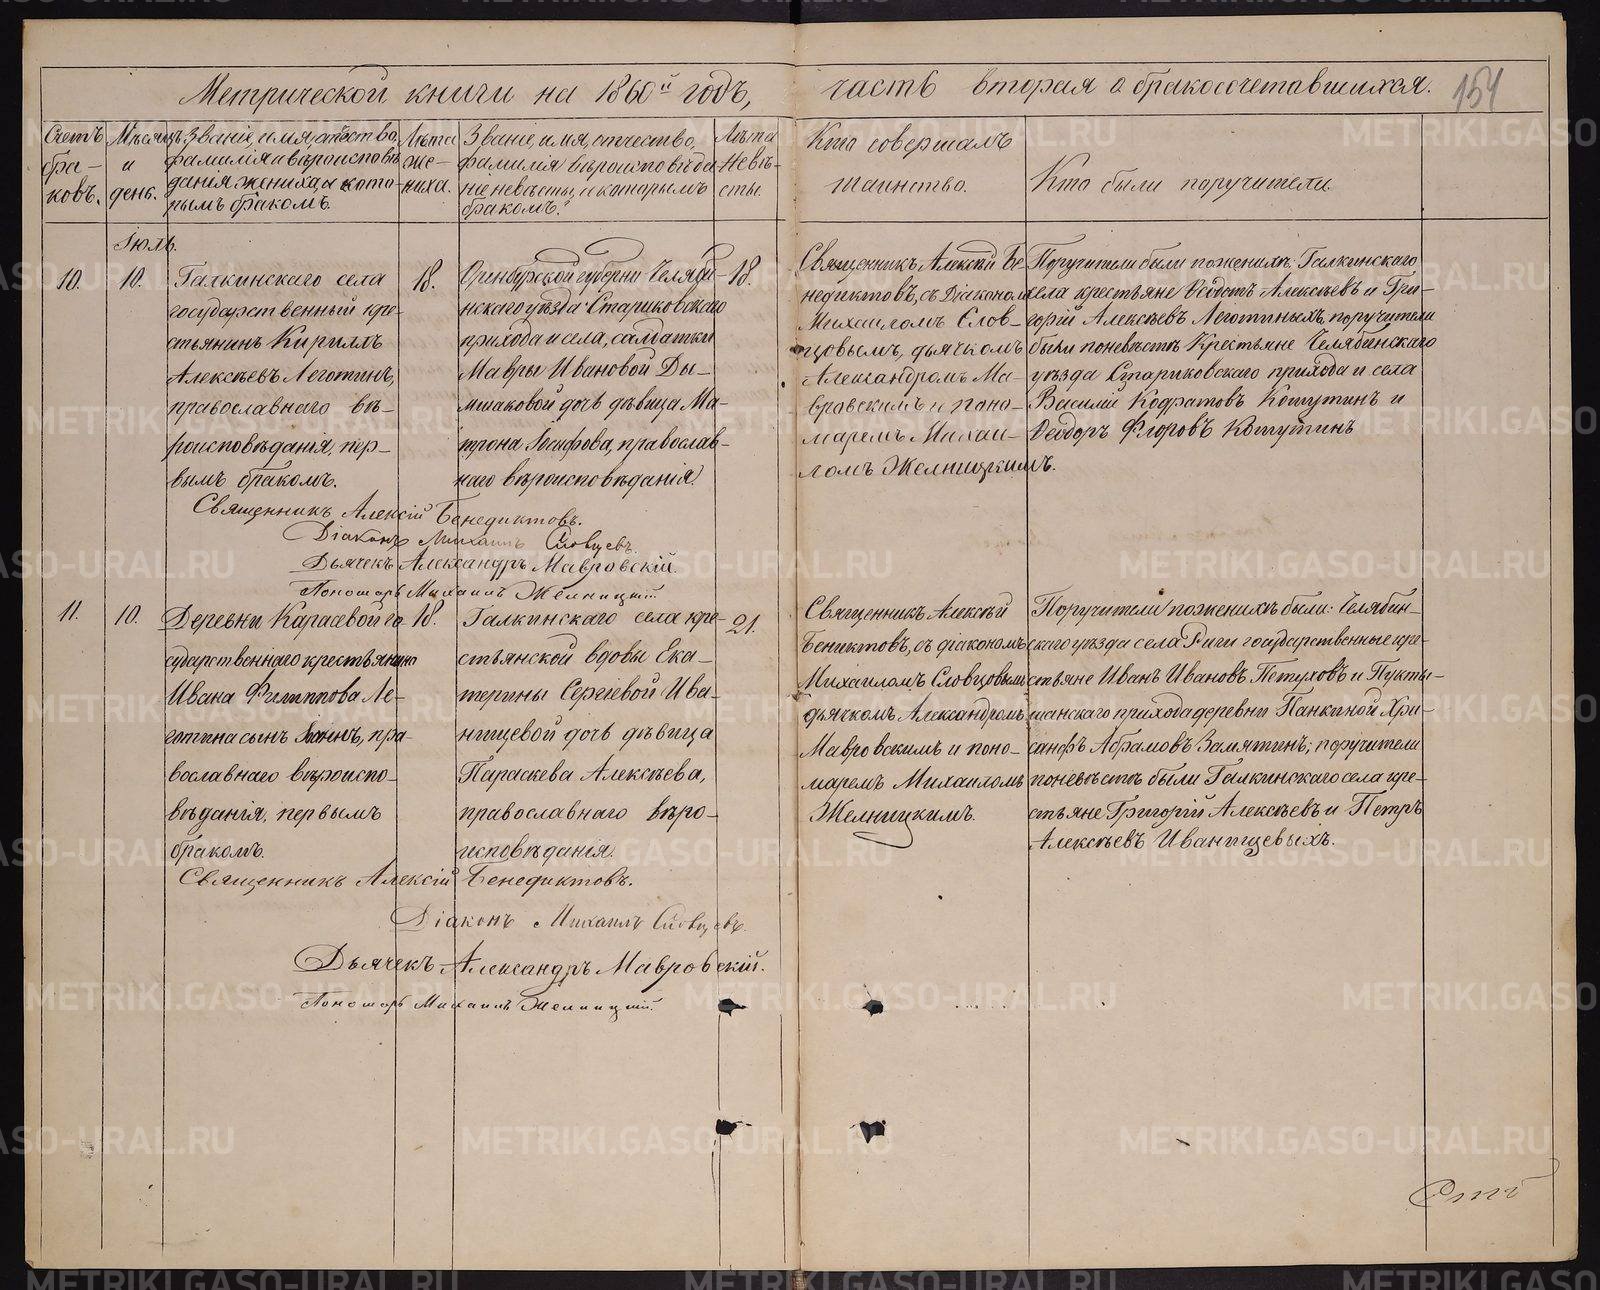 Метрической книги на 1860й годъ,
часть вторая о бракосочетавшихся.
154
Счетъ бра-ковъ.
Мѣсяцъ и день.
Званіе, имя, отчество,
фамилія и вѣроисповѣ-
данія жениха, и кото-
рымъ бракомъ.
Лѣта же-ниха.
Званіе, имя, отчество,
фамилія вѣроисповѣда
ніе невѣсты, и которымъ
бракомъ.
Лѣта Невѣ-сты.
Кто совершалъ
таинство.
Кто были поручители.
Іюль.
10.
10.
Галкинскаго села
государственный кре-
стьянинъ Кириллъ
Алексѣевъ Леготинъ,
православнаго вѣ-
роисповѣданія, пер-
вымъ бракомъ.
18.
Оренбургской губерніи Челяби-
нскаго уѣзда Стариковскаго
прихода и села, салдатки
Мавры Ивановой Ды-
мшаковой дочь дѣвица Ма-
трона Іосифова, православ-
наго вѣроисповѣданія.
18.
Священникъ Алексѣй Бе-
недиктовъ, съ Діакономъ
Михаиломъ Слов-
цовымъ, дьячкомъ
Александромъ Ма-
вровскимъ и поно-
маремъ Михаи-
ломъ Желницкимъ.
Поручители были поженихѣ: Галкинскаго
села крестьяне Ѳеодотъ Алексѣевъ и Гри-
горій Алексѣевъ Леготиныхъ, поручители
были поневѣстѣ Крестьяне Челябинскаго
уѣзда Стариковскаго прихода и села
Василій Кодратовъ Кошутинъ и
Ѳеодоръ Флоровъ Кошутинъ
Священникъ Алексій Бенедиктовъ.
Діаконъ Михаилъ Словцевъ.
Дьячекъ Александръ Мавровскій.
Пономарь Михаилъ Желницкій.
11.
10.
Деревни Карасевой го-
сударственнаго крестьянина
Ивана Филиппова Ле-
готина сынъ пра-
вославнаго вѣроиспо-
вѣданія, первымъ
бракомъ.
18.
Галкинскаго села кре-
стьянской вдовы Ека-
терины Сергіевой Ива-
нищевой дочь дѣвица
Параскева Алексѣева,
православнаго вѣро-
исповѣданія.
21.
Священникъ Алексѣй
Бениктовъ, съ діакономъ
Михаиломъ Словцовымъ
дьячкомъ Александромъ
Мавровскимъ и поно-
маремъ Михаиломъ
Желницкимъ.
Поручители поженихѣ были: Челябин-
скаго уѣзда села Риги государственные кре-
стьяне Иванъ Ивановъ Пѣтуховъ и Пукты-
шанскаго прихода деревни Панкиной Хри-
санфъ Абрамовъ Замятинъ; поручители
поневѣстѣ были Галкинскаго села кре-
стьяне Григорій Алексѣевъ и Петръ
Алексѣевъ Иванищевыхъ.
Священникъ Алексій Бенедиктовъ.
Діаконъ Михаилъ Словцевъ.
Дьячекъ Александръ Мавровскій.
Пономарь Михаилъ Желницкій.
METRIKI.GASO-URAL.RU